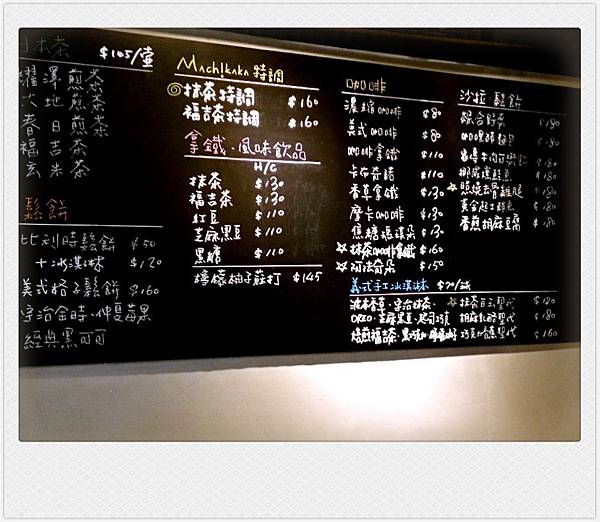 日本茶 $145/壺
煎茶
煎茶
春日煎茶
福吉茶
玄米茶
鬆餅
比利時鬆餅 $50
+冰淇淋 $120
美式格子鬆餅 $160
宇治金時·仲夏莓果
經典黑可可
Machikaka 特調
抹茶特調 $160
福吉茶特調 $160
拿鐵·風味飲品
H/C
抹茶 $130
福吉茶 $130
紅豆 $110
芝麻黑豆 $110
黑糖 $110
檸檬柚子蘇打 $145
咖啡
濃縮咖啡 $80
美式咖啡 $80
咖啡拿鐵 $110
卡布奇諾 $110
香草拿鐵 $130
摩卡咖啡 $130
焦糖瑪琪朵 $130
☆抹茶咖啡拿鐵 $160
☆阿法奇朵 $150
義式手工冰淇淋 $70/球
宇治抹茶·
OREO·芝麻黑豆·
焙煎福吉茶·
沙拉 鬆餅
綜合野菜 $180
$180
$180
$180
照燒去骨雞腿 $180
$180
香煎胡麻豆腐 $180
☆抹茶白玉聖代 $180
胡麻 聖代 $180
聖代 $160